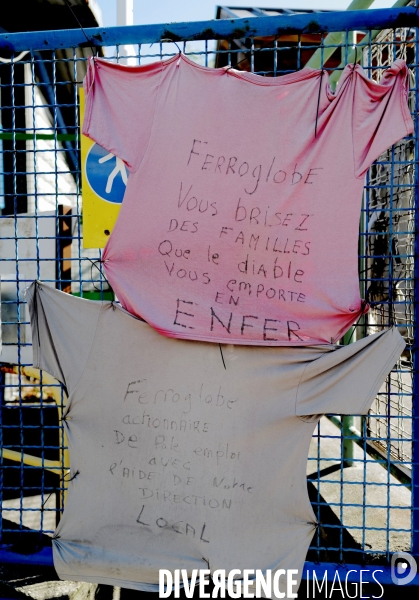 FERROGLOBE
VOUS BRISEZ
DES FAMILLES
QUE le diable
VOUS EMPORTE
EN
ENFER
Ferroglobe
actionnaire
DE Pole emploi
AVEC
l'AIDE DE Notre
DIRECTION
LOCAL
DIVERGENCE IMAGES